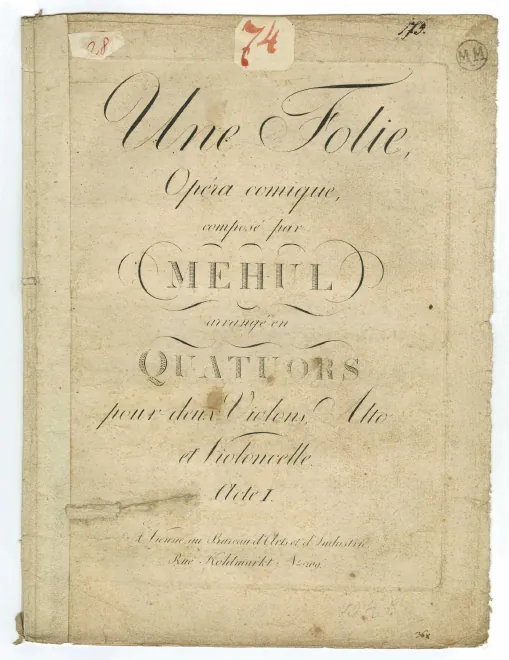 28
74
173.
MM
Une Folie,
Opéra comique,
composé par
MEHUL
arrangé en
QUATUORS
pour deux Violons, Alto
et Violoncelle.
Acte I.
A Vienne, au Bureau d'Arts et d'Industrie,
Rue Kohlmarkt